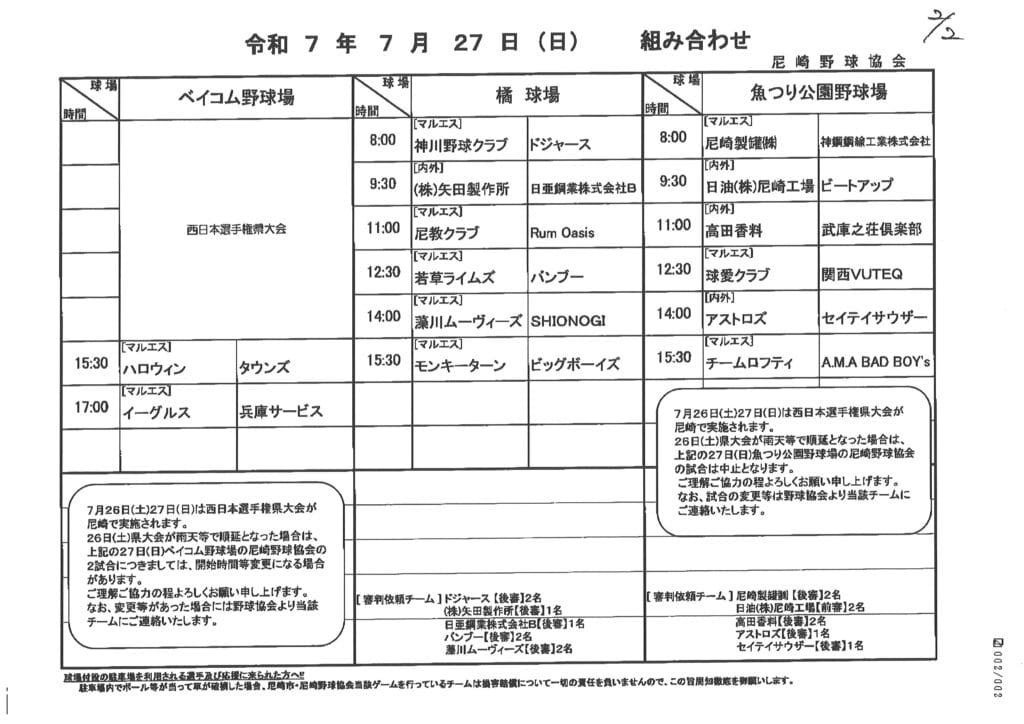 2/2
令和 7 年 7 月 27 日 (日) 組み合わせ
尼崎野球協会
球場
時間
ベイコム野球場
西日本選手権県大会
15:30
[マルエス]
ハロウィン
タウンズ
17:00
[マルエス]
イーグルス
兵庫サービス
7月26日(土)27日(日)は西日本選手権県大会が
尼崎で実施されます。
26日(土)県大会が雨天等で順延となった場合は、
上記の27日(日)ベイコム野球場の尼崎野球協会の
2試合につきましては、開始時間等変更になる場合
があります。
ご理解ご協力の程よろしくお願い申し上げます。
なお、変更等があった場合には野球協会より当該
チームにご連絡いたします。
球場
時間
橘 球場
8:00
[マルエス]
神川野球クラブ
ドジャース
9:30
[内外]
(株)矢田製作所
日亜鋼業株式会社B
11:00
[マルエス]
尼教クラブ
Rum Oasis
12:30
[マルエス]
若草ライムズ
バンブー
14:00
[マルエス]
藻川ムーヴィーズ
SHIONOGI
15:30
[マルエス]
モンキーターン
ビッグボーイズ
[審判依頼チーム]ドジャース【後審】2名
(株)矢田製作所【後審】1名
日亜鋼業株式会社B【後審】1名
バンブー【後審】2名
藻川ムーヴィーズ【後審】2名
球場
時間
魚つり公園野球場
8:00
[マルエス]
尼崎製罐㈱
神鋼鋼線工業株式会社
9:30
[内外]
日油(株)尼崎工場
ビートアップ
11:00
[内外]
高田香料
武庫之荘倶楽部
12:30
[マルエス]
球愛クラブ
関西VUTEQ
14:00
[内外]
アストロズ
セイテイサウザー
15:30
[マルエス]
チームロフティ
A.M.A BAD BOY's
7月26日(土)27日(日)は西日本選手権県大会が
尼崎で実施されます。
26日(土)県大会が雨天等で順延となった場合は、
上記の27日(日)魚つり公園野球場の尼崎野球協会
の試合は中止となります。
ご理解ご協力の程よろしくお願い申し上げます。
なお、試合の変更等は野球協会より当該チームに
ご連絡いたします。
[審判依頼チーム] 尼崎製罐㈱【後審】2名
日油(株)尼崎工場【前審】2名
高田香料【後審】2名
アストロズ【後審】1名
セイテイサウザー【後審】1名
球場付設の駐車場を利用される選手及び応援に来られた方へ!!
駐車場内でボール等が当って車が破損した場合、尼崎市・尼崎野球協会当該ゲームを行っているチームは損害賠償について一切の責任を負いませんので、この旨周知徹底を御願いします。
002/002